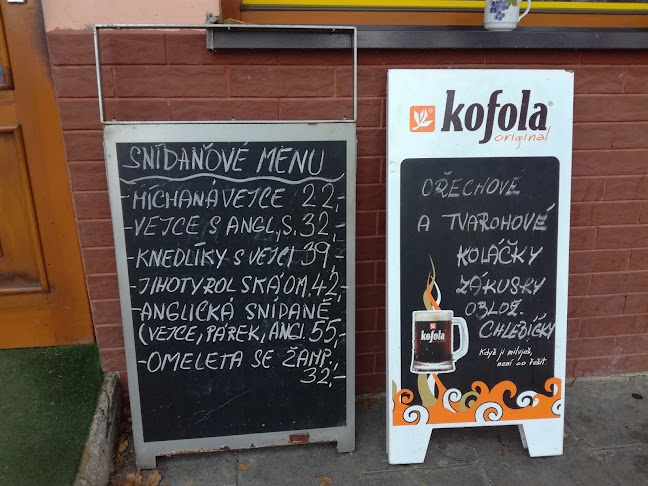 SNÍDAŇOVÉ MENU
- MÍCHANÁ VEJCE 22,-
- VEJCE S ANGL.S. 32,-
- KNEDLÍKY S VEJCI 39,-
- JIHOTYROLSKÁ OM. 42,-
- ANGLICKÁ SNÍDANĚ
(VEJCE, PÁREK, ANGL. 55,-
- OMELETA SE ŽAMP.
32,-
kofola®
original
OŘECHOVÉ
A TVAROHOVÉ
KOLÁČKY
ZÁKUSKY
OBLOŽ.
CHLEBÍČKY
kofola
Když ji miluješ,
není co řešit.